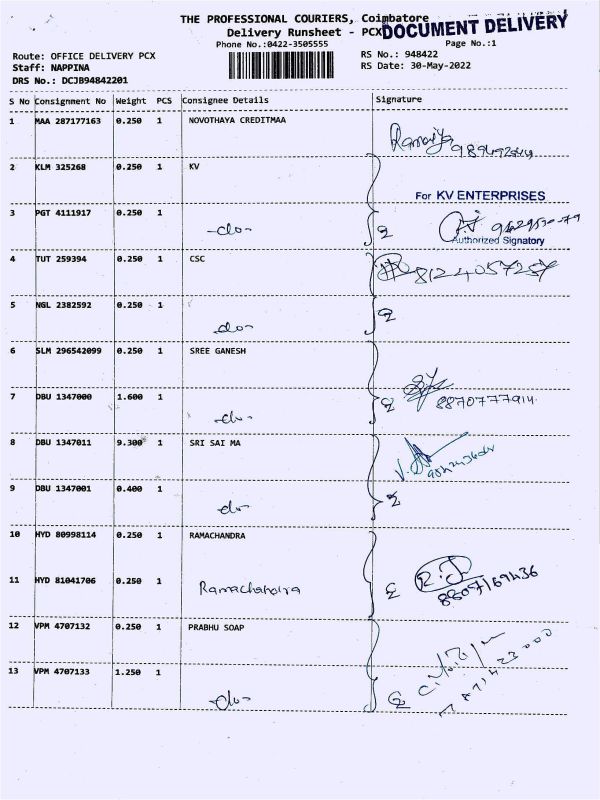 THE PROFESSIONAL COURIERS, Coimbatore
Delivery Runsheet - PCX
DOCUMENT DELIVERY
Phone No.:0422-3505555
Page No.:1
Route: OFFICE DELIVERY PCX
RS No.: 948422
Staff: NAPPINA
RS Date: 30-May-2022
DRS No.: DCJB94842201
S No Consignment No Weight PCS Consignee Details Signature
1 MAA 287177163 0.250 1 NOVOTHAYA CREDITMAA
2 KLM 325268 0.250 1 KV
For KV ENTERPRISES
3 PGT 4111917 0.250 1 -do- 2
Authorized Signatory
4 TUT 259394 0.250 1 CSC 8124057257
5 NGL 2382592 0.250 1 -do- 2
6 SLM 296542099 0.250 1 SREE GANESH
7 DBU 1347000 1.600 1 -do- 2 8870777914
8 DBU 1347011 9.300 1 SRI SAI MA
9 DBU 1347001 0.400 1 -do- 2
10 HYD 80998114 0.250 1 RAMACHANDRA
11 HYD 81041706 0.250 1 Ramachandra 2 R.J 8807169436
12 VPM 4707132 0.250 1 PRABHU SOAP
13 VPM 4707133 1.250 1 -do- 2